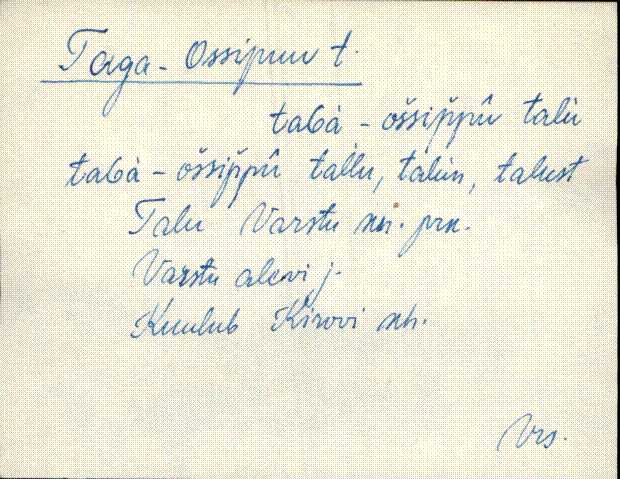 Taga-Ossipuu t.
taGà - oššip̌p̌û talù
taGà - oššip̌p̌û tallu, talun, talust
Talu Varstu kn. prk.
Varstu alevi j.
Kuulub Kirovi kh.
Vrs.